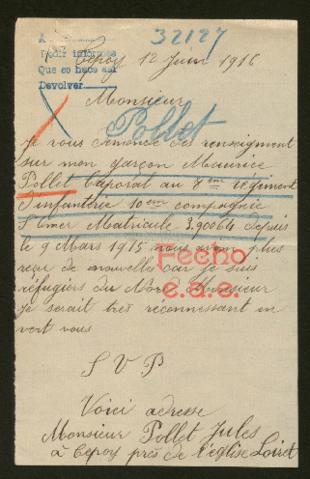 32127
Pedir informes
Que se hace así
Devolver
Cepoy 12 Juin 1916
Monsieur
Pollet
Je vous demande des renseigment
sur mon garçon Maurice
Pollet Caporal au 8eme régiment
d'infanterie 10eme compagnie
S Omer Matricule 3.90064 depuis
le 9 Mars 1915 nous avons plus
reçue de nouvelle car je suis
réfugiers du Nord Monsieur
Fecho
e.a.e.
Je serait très réconnessant en
vert vous
S V P
Voici adresse
Monsieur Pollet Jules
à Cepoy près de l'église Loiret